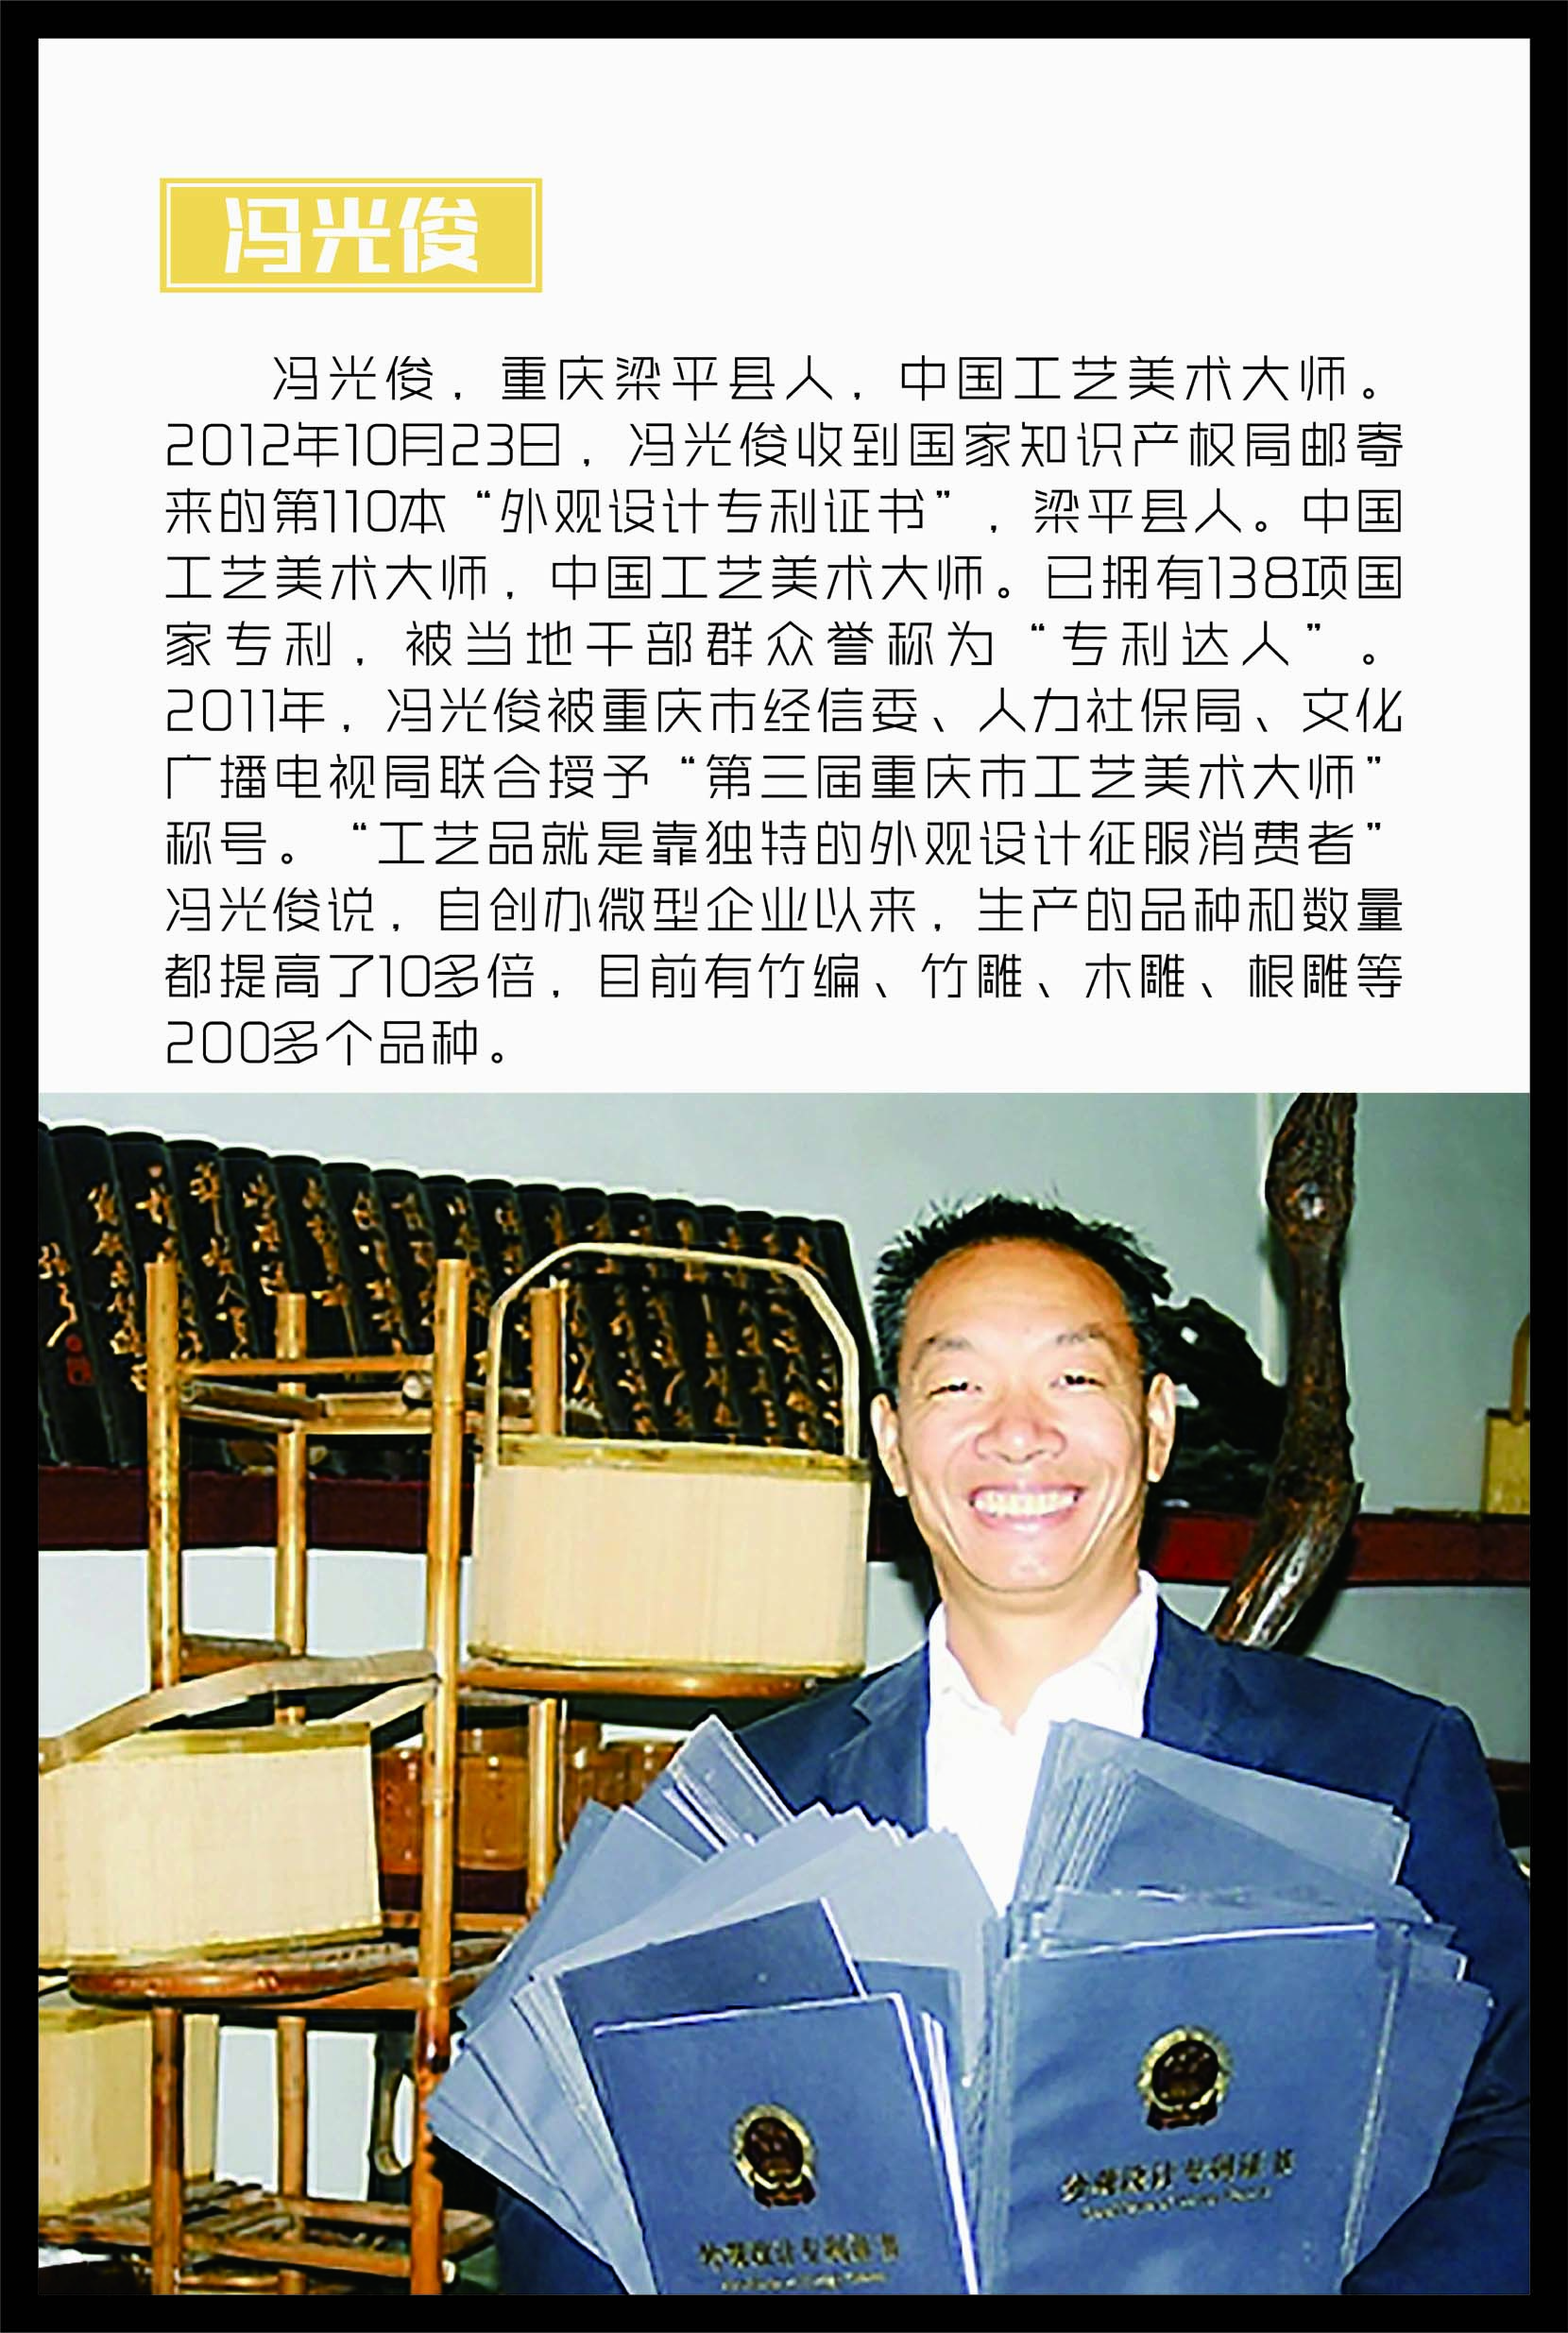 冯光俊
冯光俊，重庆梁平县人，中国工艺美术大师。
2012年10月23日，冯光俊收到国家知识产权局邮寄
来的第110本“外观设计专利证书”，梁平县人。中国
工艺美术大师，中国工艺美术大师。已拥有138项国
家专利，被当地干部群众誉称为“专利达人”。
2011年，冯光俊被重庆市经信委、人力社保局、文化
广播电视局联合授予“第三届重庆市工艺美术大师”
称号。“工艺品就是靠独特的外观设计征服消费者”
冯光俊说，自创办微型企业以来，生产的品种和数量
都提高了10多倍，目前有竹编、竹雕、木雕、根雕等
200多个品种。
外观设计专利证书
外观设计专利证书